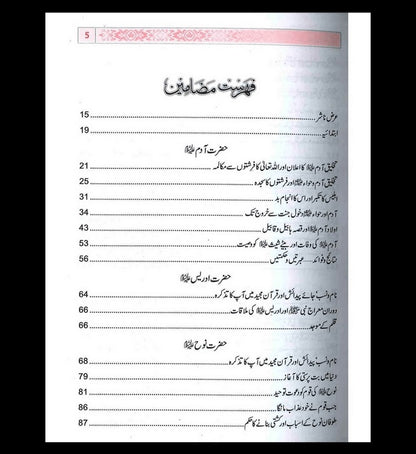 5
فہرست مضامین
عرض ناشر 15
ابتدائیہ 19
حضرت آدم علیہ السلام
تخلیق آدم علیہ السلام کا اعلان اور اللہ تعالیٰ کا فرشتوں سے مکالمہ 21
تخلیق آدم و حواء علیہما السلام اور فرشتوں کا سجدہ 25
ابلیس کا تکبر اور اس کا انجام بد 31
آدم اور حواء علیہما السلام دخول جنت سے خروج تک 34
اولاد آدم علیہ السلام اور قصہ ہابیل و قابیل 43
آدم علیہ السلام کی وفات اور بیٹے شیث علیہ السلام کو وصیت 53
نتائج و فوائد ... عبرتیں و حکمتیں 56
حضرت ادریس علیہ السلام
نام و نسب جائے پیدائش اور قرآن مجید میں آپ کا تذکرہ 64
دوران معراج نبی ﷺ اور ادریس علیہ السلام کی ملاقات 66
قلم کے موجد 66
حضرت نوح علیہ السلام
نام و نسب پیدائش اور قرآن مجید میں آپ کا تذکرہ 68
دنیا میں بت پرستی کا آغاز 79
نوح علیہ السلام کی قوم کو دعوت توحید 81
جب قوم نے خود عذاب مانگا 86
طوفان نوح کے اسباب اور کشتی بنانے کا حکم 87